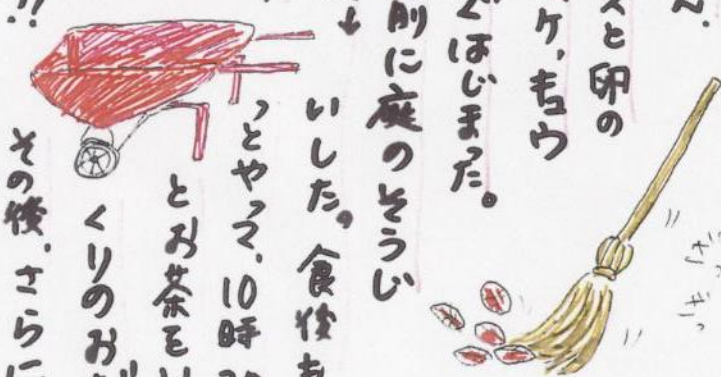 ん.
スと卵の
ケ,キュウ
ぐはじまった。
前に庭のそうじ
いした。食後も
っとやって、10時
とお茶を
くりのお
その後、さらに
!!